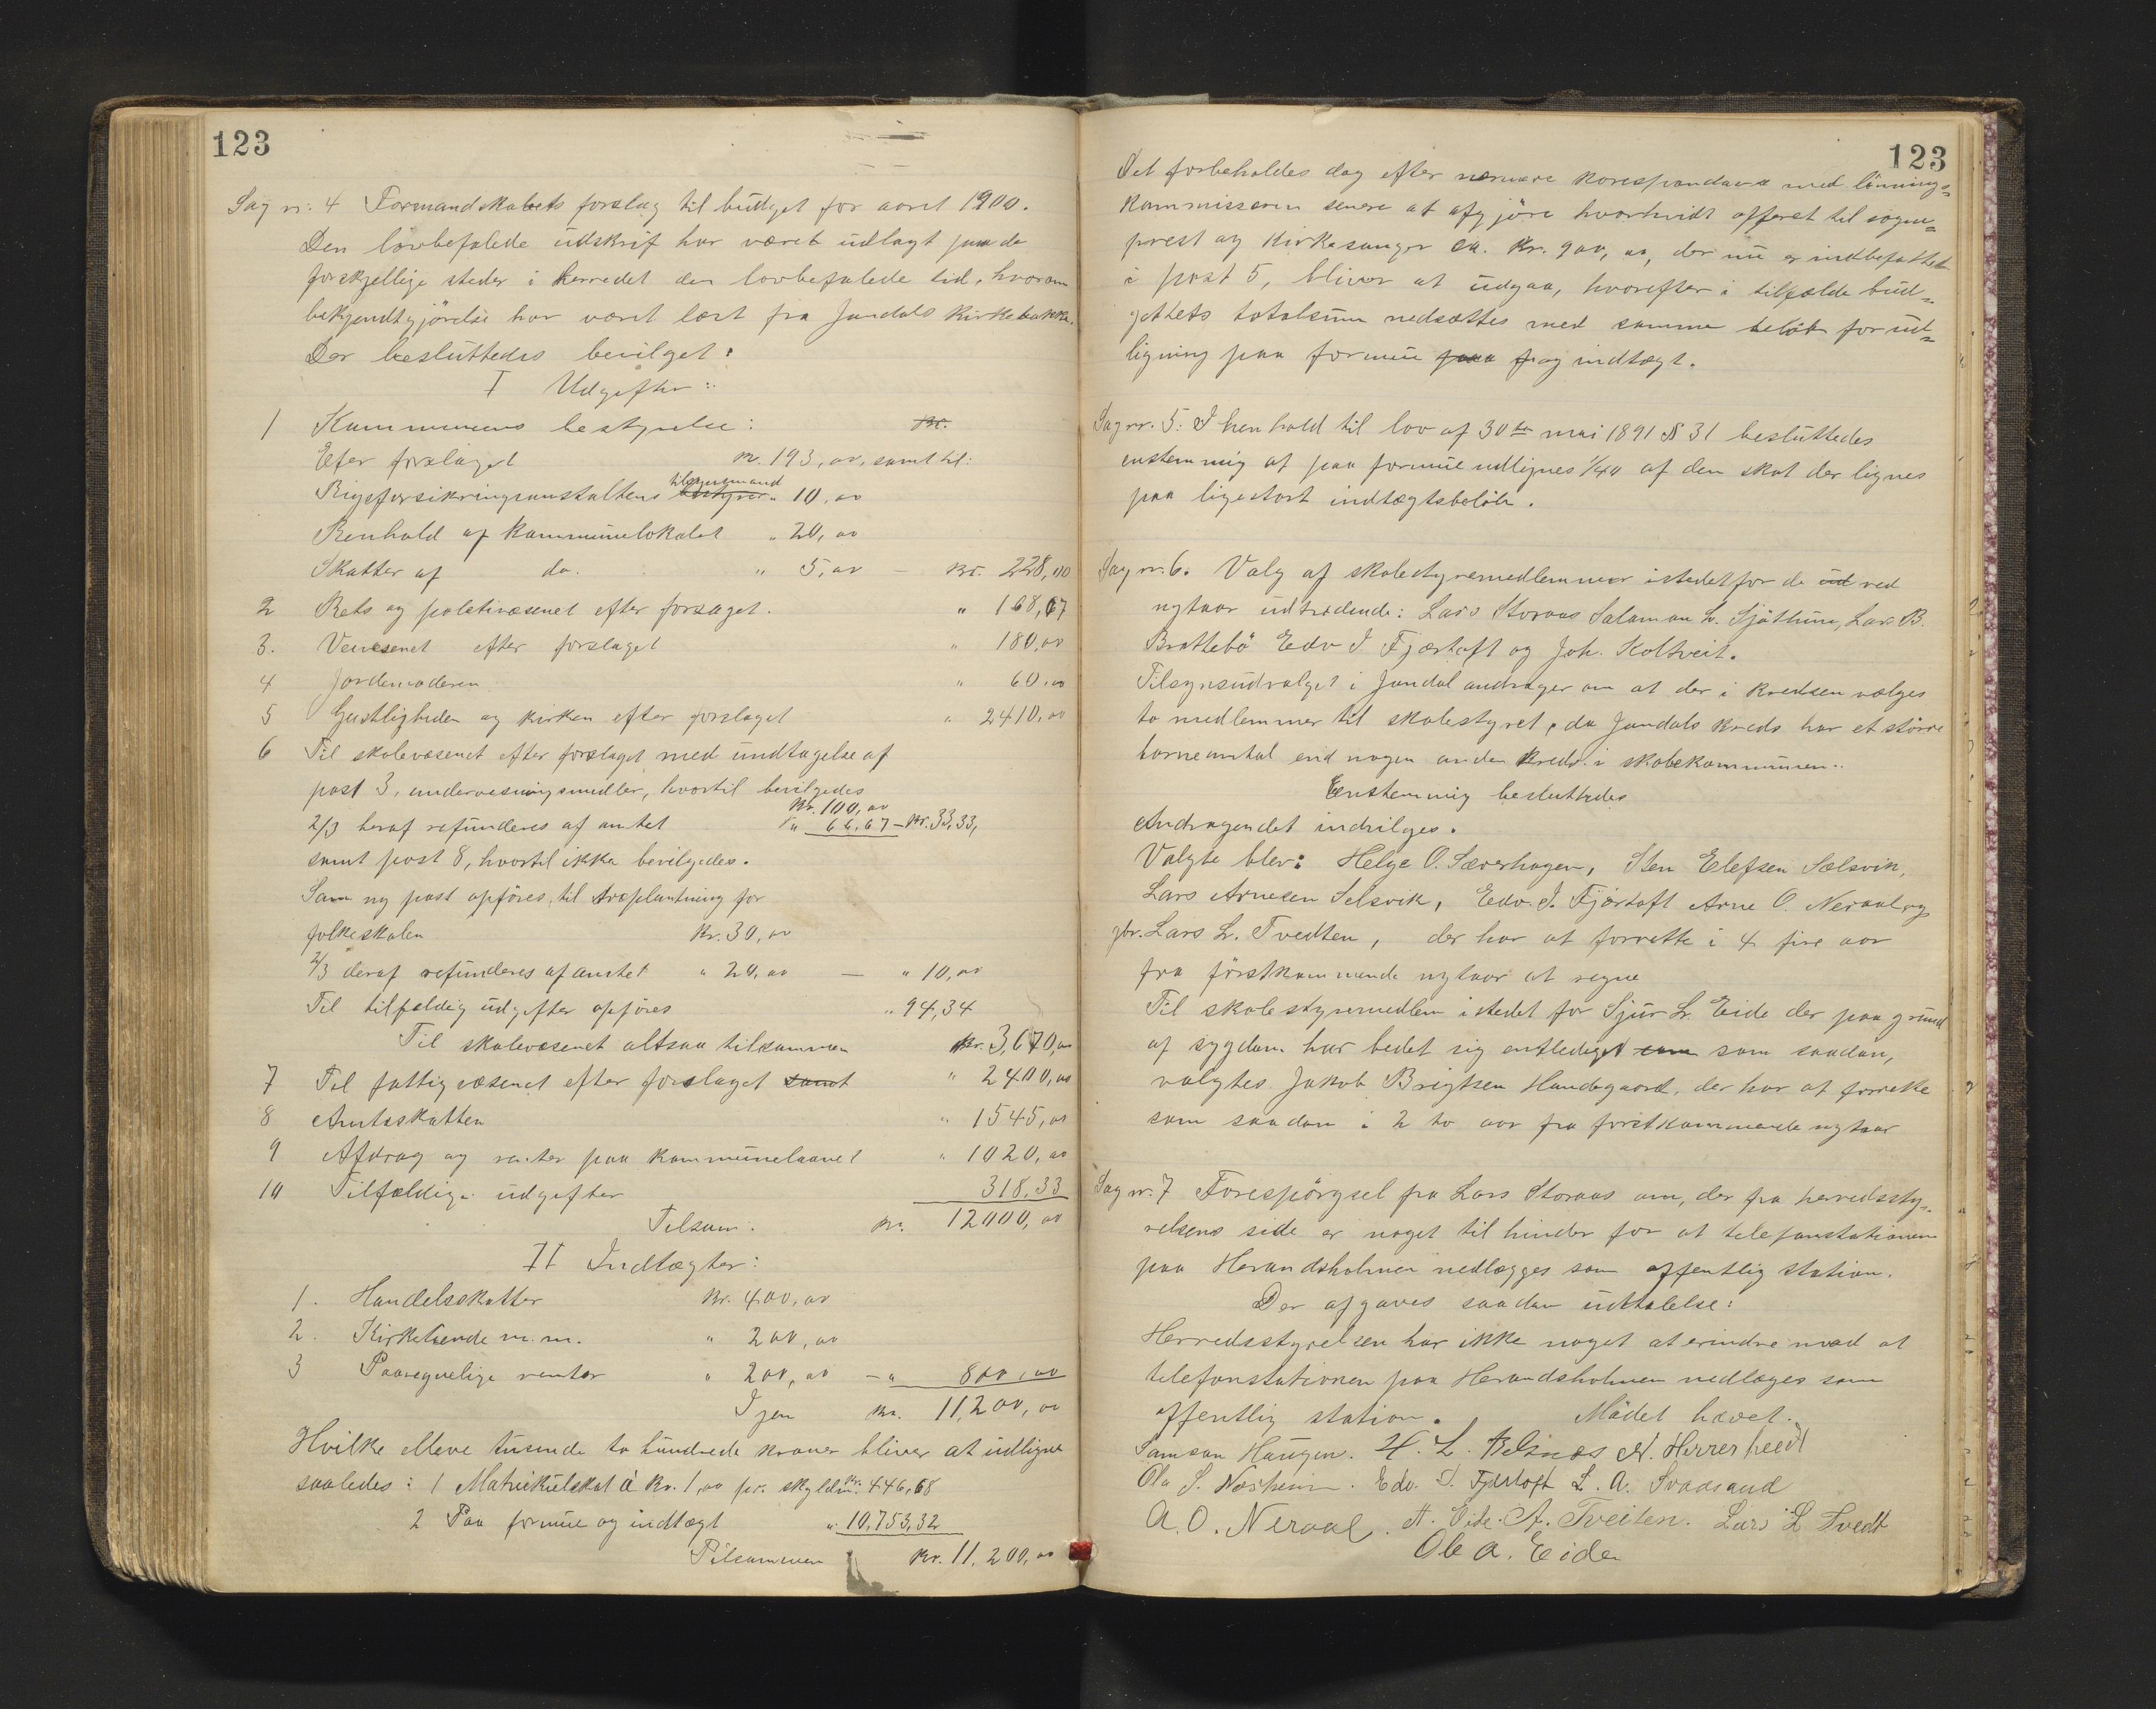 123
Sag nr: 4 Formandskabets forslag til budget for aaret 1900.
Den lovbefalede udskrif har været udlagt paa de
forskjellige steder i herredet den lovbefalede tid, hvorom
bekjendtgjörelse har været læst fra Jondals kirkebakke.
Der besluttedes bevilget:
I Udgifter:
1 Kommunens bestyrelse: Kr.
Efter forslaget Kr. 193,00, samt til:
Rigsforsikringsanstaltens bestyrer tilsynsmand " 10,00
Renhold af kommunelokalet " 20,00
Skatter af do. " 5,00 — Kr. 228,00
2 Rets og politivæsenet efter forslaget. " 168,67
3. Veivæsenet efter forslaget " 180,00
4 Jordemoderen " 60,00
5 Geistligheden og kirken efter forslaget " 2410,00
6 Til skolevæsenet efter forslaget med undtagelse af
post 3, undervisningsmidler, hvortil bevilgedes
Kr. 100,00
2/3 heraf refunderes af amtet " 66,67 — Kr. 33,33,
samt post 8, hvortil ikke bevilgedes.
Som ny post opföres, til træplantning for
folkeskolen Kr. 30,00
2/3 deraf refunderes af amtet " 20,00 — " 10,00
Til tilfældig udgifter opföres " 94,34
Til skolevæsenet altsaa tilsammen Kr. 3,670,00
7 Til fattigvæsenet efter forslaget samt " 2400,00
8 Amtsskatten " 1545,00
9 Afdrag og renter paa kommunelaanet " 1020,00
10 Tilfældige udgifter 318,33
Tilsam. Kr. 12000,00
II Indtægter:
1. Handelsskatter Kr. 400,00
2. Kirketiende m.m. " 200,00
3 Paaregnelige renter " 200,00 — " 800,00
Igjen Kr. 11,200,00
Hvilke elleve tusinde to hundrede kroner bliver at udligne
saaledes: 1 Matrikulskat á Kr. 1,00 pr. skyldm: Kr. 446,68
2 Paa formue og indtægt " 10,753,32
Tilsammen Kr. 11,200,00
123
Det forbeholdes dog efter nærmere korespondance med lönnings=
kommissionen senere at afgjöre hvorvidt offeret til sogne=
prest og kirkesanger ca. Kr. 900,00, der nu er indbefattet
i post 5, bliver at udgaa, hvorefter i tilfælde bud=
gettets totalsum nedsættes med samme belöb for ud=
ligning paa formue paa f og indtægt.
Sag nr. 5: I henhold til lov af 30te mai 1891 § 31 besluttedes
enstemmig at paa formue udlignes 1/40 af den skat der lignes
paa ligestort indtægtsbelöb.
Sag nr. 6. Valg af skolestyremedlemmer istedetfor de ud ved
nytaar udtrædende: Lars Storaas Salamon L. Sjöthun, Lars B.
Brattebö Edv I Fjærtoft og Joh. Koltveit.
Tilsynsudvalget i Jondal andrager om at der i kredsen vælges
to medlemmer til skolestyret, da Jondals kreds har et större
barneantal end nogen anden kreds i skolekommunen.
Enstemmig besluttedes
Andragendet indvilges.
Valgte blev: Helge O. Sæverhagen, Sten Elefsen Selsvik,
Lars Arnesen Selsvik, Edv. I. Fjærtoft Arne O. Neraal og
Lars L. Tvedten, der har at forrette i 4 fire aar
fra förstkommende nytaar at regne
Til skolestyremedlem istedet for Sjur L. Eide der paa grund
af sygdom har bedet sig entlediget som som saadan,
valgtes Jakob Brigtsen Handegaard, der har at forrette
som saadan i 2 to aar fra förstkommende nytaar
Sag nr. 7 Forespörgsel fra Lars Storaas om, der fra herredssty=
relsens side er noget til hinder for at telefonstationen
paa Herandsholmen nedlægges som offentlig station.
Der afgaves saadan udtalelse:
Herredsstyrelsen har ikke noget at erindre mod at
telefonstationen paa Herandsholmen nedlæges som
offentlig station. Mödet hævet.
Samson Haugen. H. L. Belsnæs N. Herrerheed
Ola S. Næsheim. Edv. I. Fjærtoft L. A. Svaasand
A. O. Neraal. A. Eide. A. Tveiten. Lars L Tvedt
Ole A. Eide